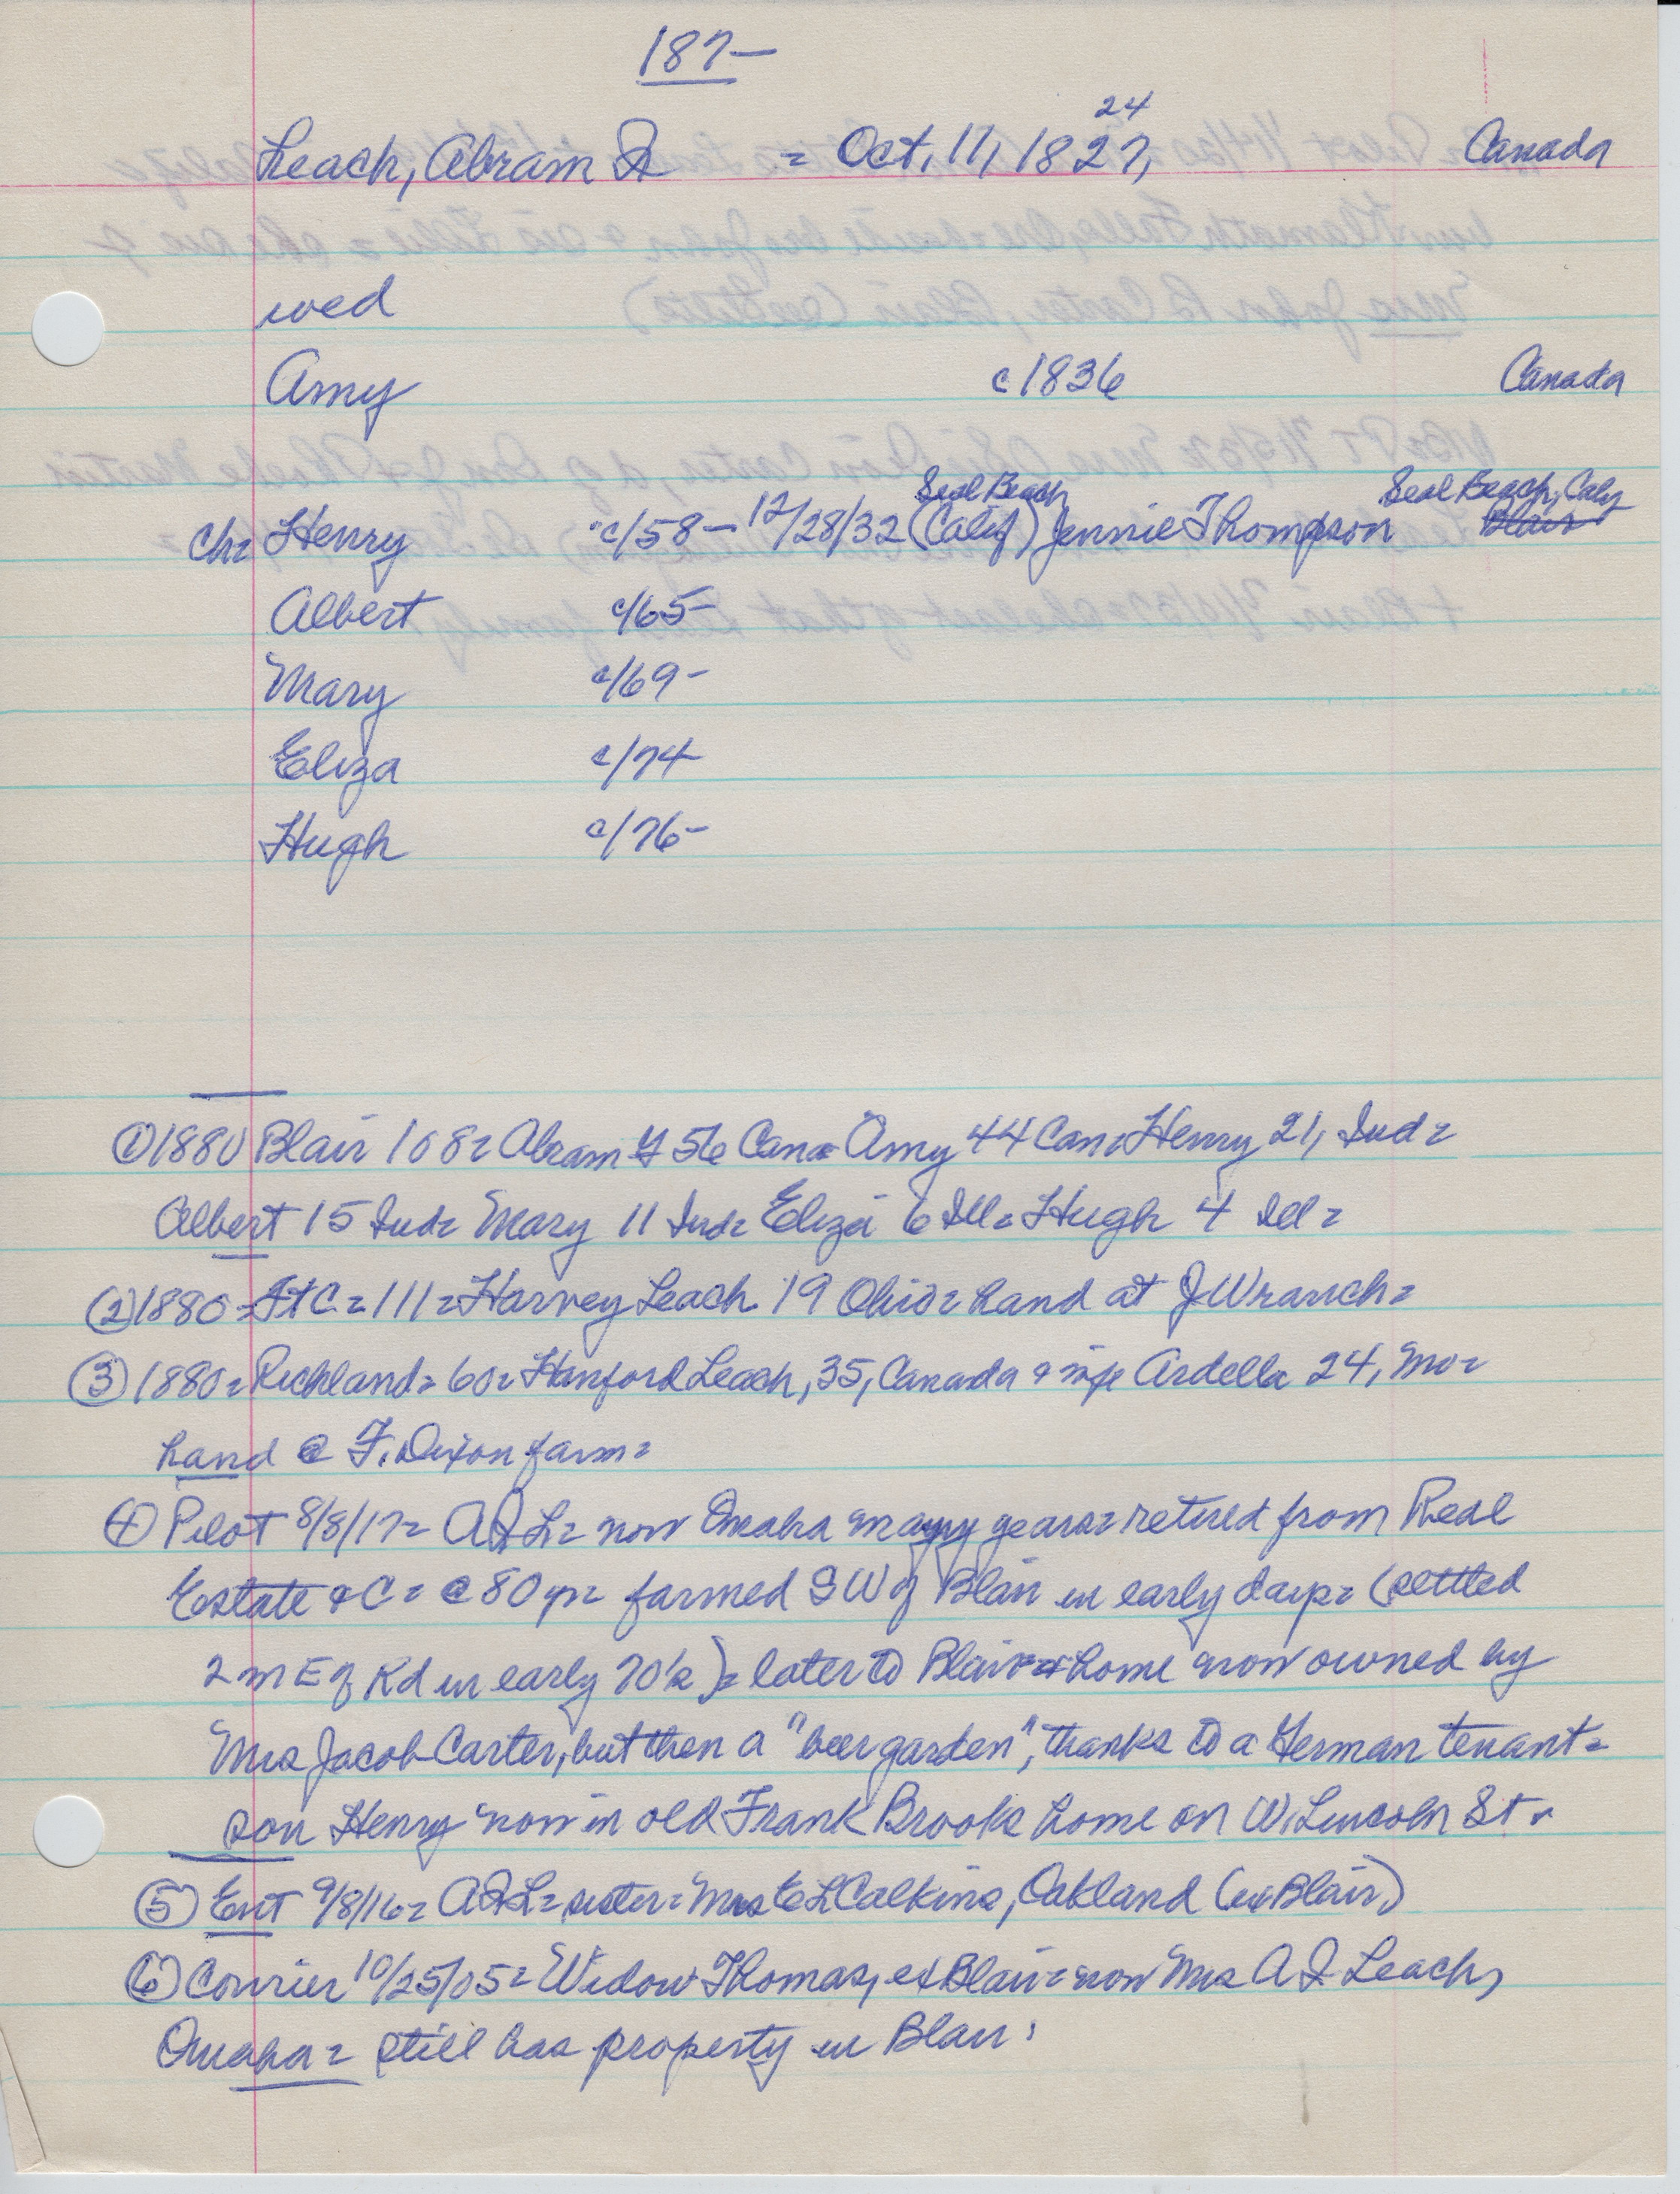 187-
24
Leach, Abram = Oct, 11, 1827, Canada
wed
Amy c1836 Canada
Seal Beach Seal Beach, Calif
Ch= Henry c/58- 12/28/32 (Calif) Jennie Thompson Blair
Albert c/65-
Mary c/69-
Eliza c/74
Hugh c/76-
① 1880 Blair 168= Abram 56 Can= Amy 44 Can= Henry 21, Ind=
Albert 15 Ind= Mary 11 Ind= Eliza 6 Ill= Hugh 4 Ill=
② 1880= Ft C= 111= Harvey Leach 19 Ohio= hand at J W ranch=
③ 1880= Richland= 60= Hanford Leach, 35, Canada & wife Ardella 24, Mo=
hand @ F. Dixon farm=
④ Pilot 8/8/17= A L= now Omaha many years= retired from Real
Estate &C= @ 80 yr= farmed SW of Blair in early days= (settled
2 m E of Rd in early 70's)= later to Blair= home now owned by
Mrs Jacob Carter, but then a "beer garden", thanks to a German tenant=
son Henry now in old Frank Brooks home on W. Lincoln St=
⑤ Ent 9/8/16= A L= sister= Mrs E L Calkins, Oakland (ex Blair)
⑥ Courier 10/25/05= Widow Thomas, ex Blair= now Mrs A Leach,
Omaha= still has property in Blair.